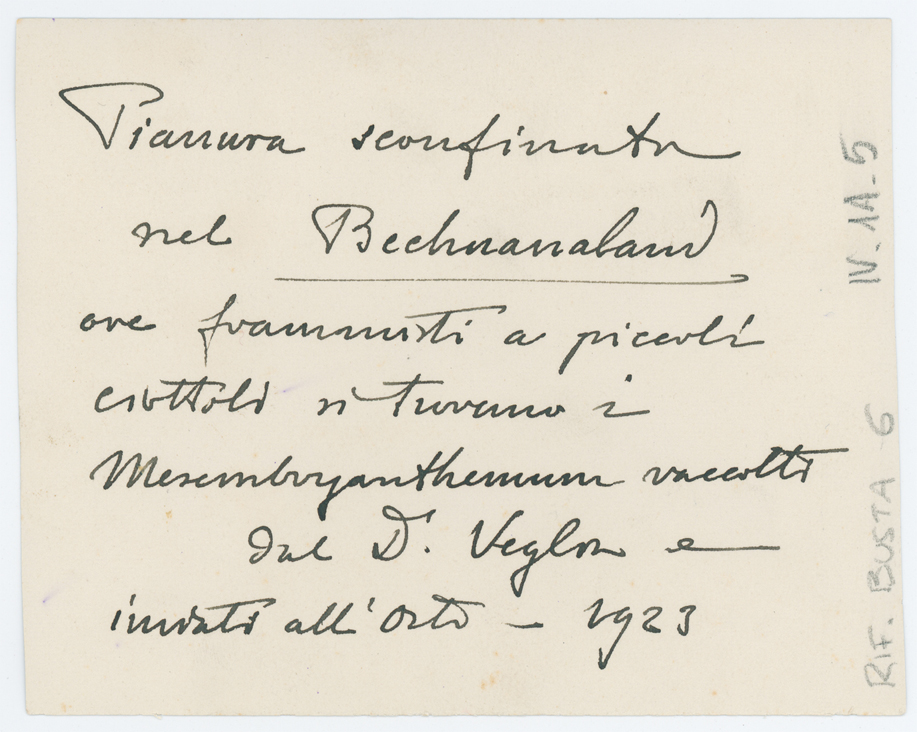 Pianura sconfinata
nel Bechuanaland
ove frammisti a piccoli
ciottoli si trovano i
Mesembryanthemum raccolti
dal Dr. Veglon e
inviati all'Orto – 1923
IV. 1A-5
RIF. BUSTA 6